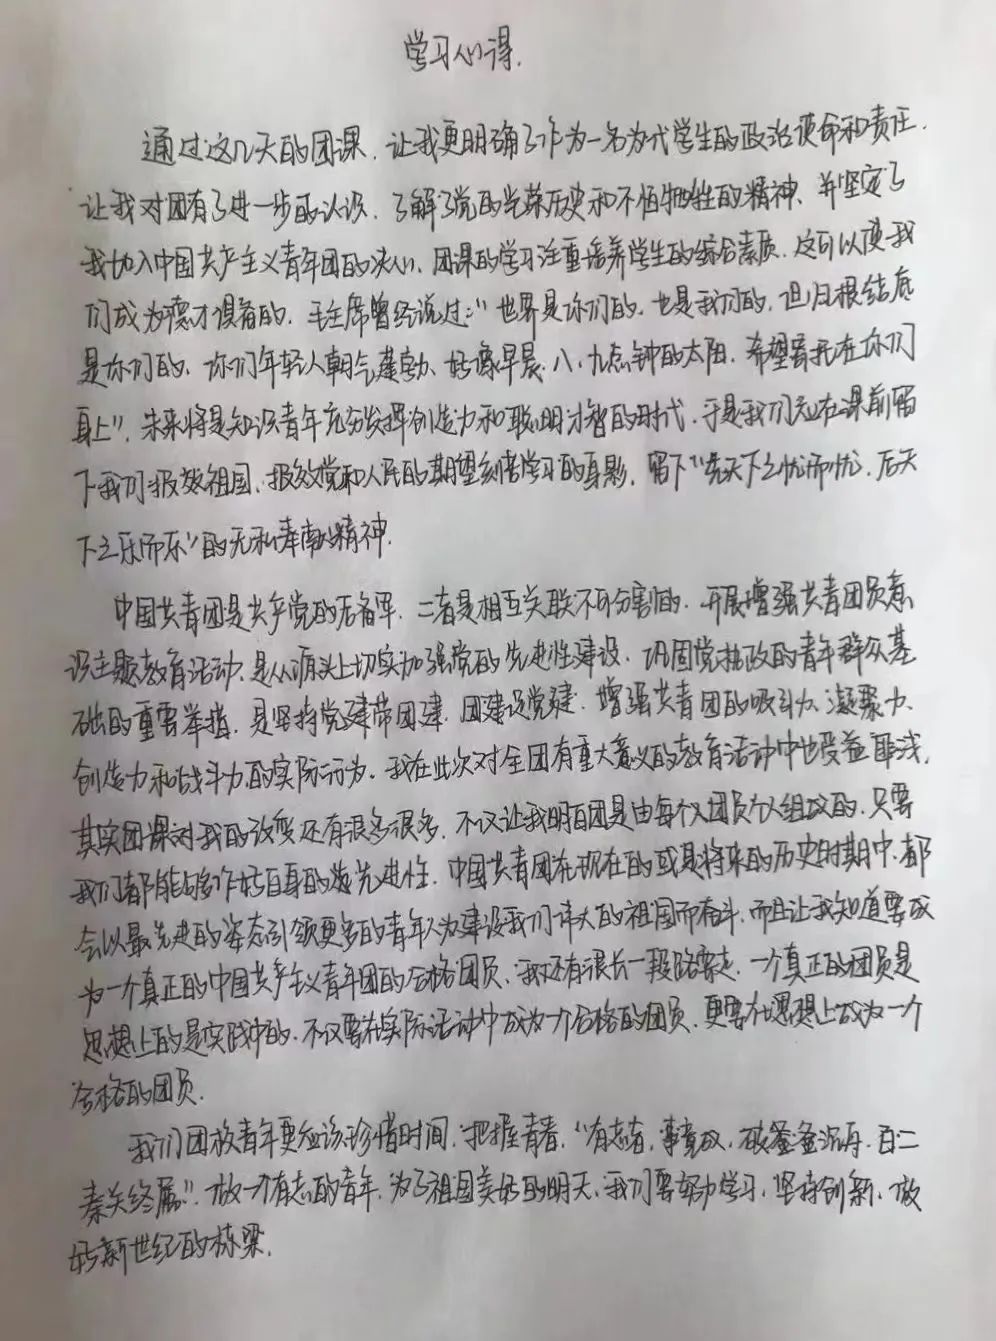 学习心得.
通过这几天的团课,让我更明确了作为一名当代学生的政治使命和责任.
让我对团有了进一步的认识,了解了党的光荣历史和不怕牺牲的精神、并坚定了
我加入中国共产主义青年团的决心,团课的学习注重培养学生的综合素质,这可以使我
们成为德才俱备的.毛主席曾经说过:"世界是你们的,也是我们的,但归根结底
是你们的,你们年轻人朝气蓬勃、好像早晨八、九点钟的太阳,希望寄托在你们
身上".未来将是知识青年充分发挥创造力和聪明才智的时代,于是我们在课前留
下我们报效祖国、报效党和人民的期望刻苦学习的身影,留下"先天下之忧而忧,后天
下之乐而乐"的无私奉献精神.
中国共青团是共产党的后备军,二者是相互关联不可分割的,开展增强共青团员意
识主题教育活动,是从源头上切实加强党的先进性建设、巩固党执政的青年群众基
础的重要举措,是坚持党建带团建、团建促党建,增强共青团的吸引力、凝聚力、
创造力和战斗力的实际行为,我在此次对全团有重大意义的教育活动中也受益匪浅,
其实团课对我的改变还有很多很多,不仅让我明白团是由每个团员个人组成的,只要
我们都能够作好自身的先进性,中国共青团在现在的或是将来的历史时期中,都
会以最先进的姿态引领更多的青年人为建设我们伟大的祖国而奋斗,而且让我知道要成
为一个真正的中国共产主义青年团的合格团员,我还有很长一段路要走,一个真正的团员是
思想上的是实践中的,不仅要在实际活动中成为一个合格的团员,更要在思想上成为一个
合格的团员.
我们团族青年更应该珍惜时间,把握青春,"有志者,事竟成,破釜沉舟,百二
秦关终属".做一个有志的青年,为了祖国美好的明天,我们要努力学习,坚持创新,做
好新世纪的栋梁.